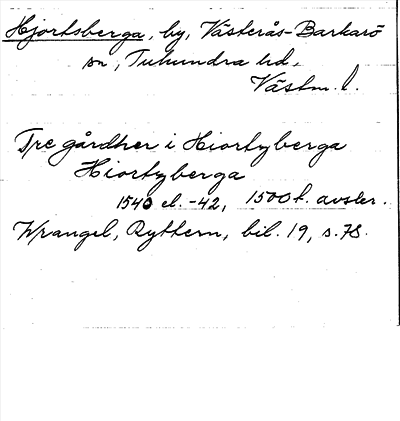 Hjortsberga, by, Västerås-Barkarö
sn, Tuhundra hd,
Västm. l.
Tre gårdher i Hiortzberga
Hiortzberga
1540 el. -42, 1500 t. avskr.
Wrangel, Ryttern, bil. 19, s. 78.